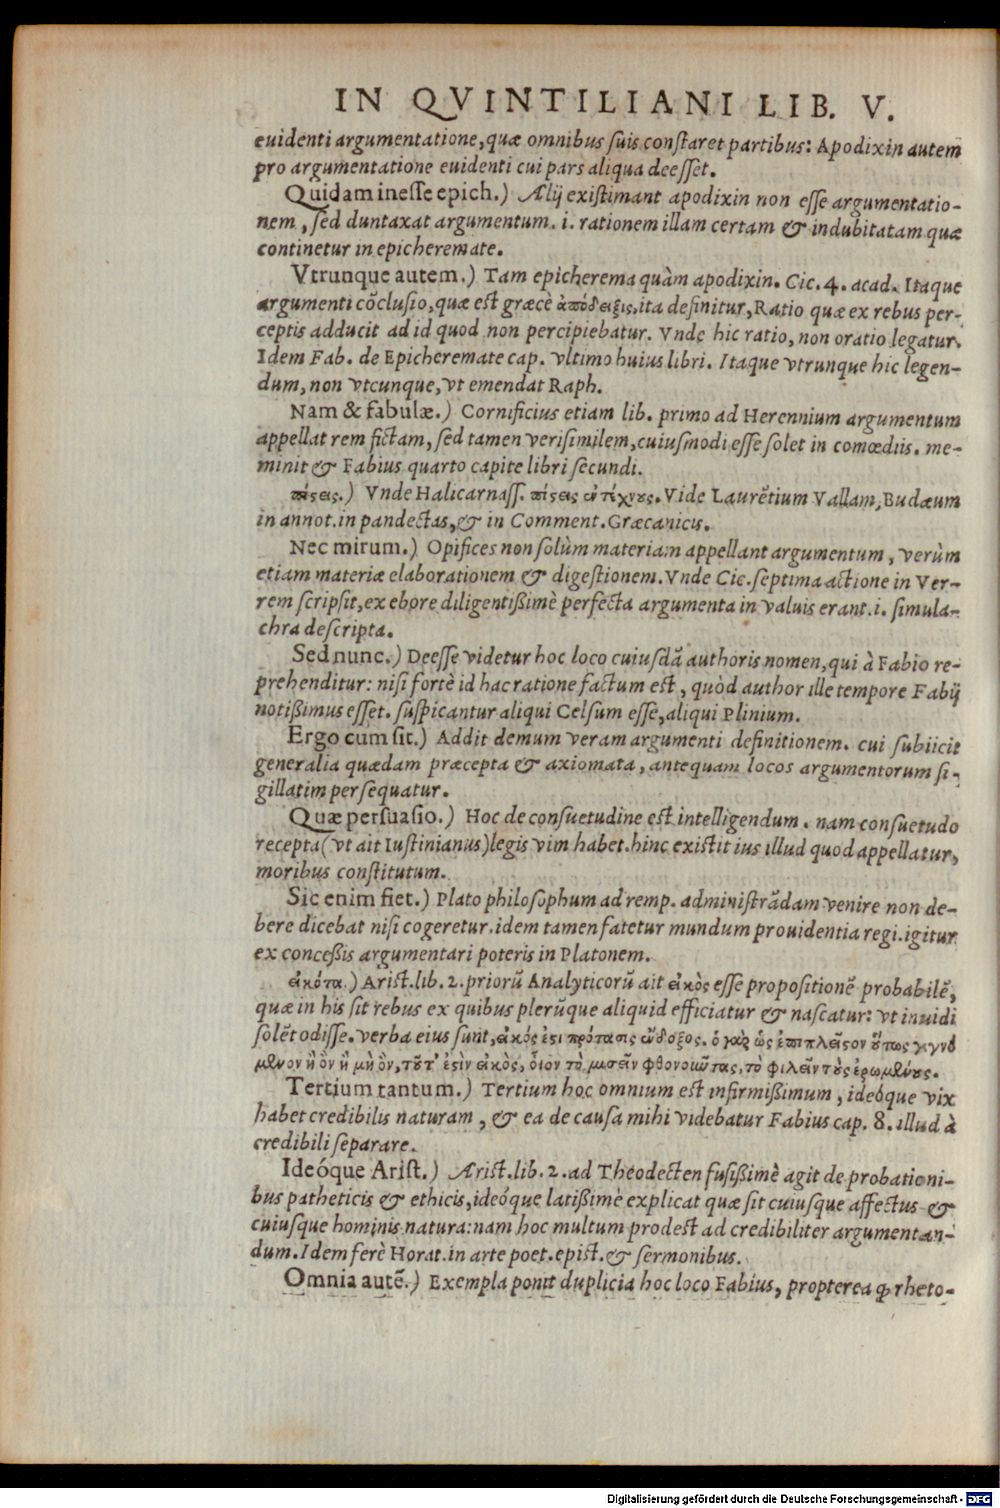 IN QVINTILIANI LIB. V.
euidenti argumentatione, quæ omnibus suis constaret partibus: Apodixin autem
pro argumentatione euidenti cui pars aliqua deesset.
Quidam inesse epich.) Alij existimant apodixin non esse argumentatio-
nem, sed duntaxat argumentum. i. rationem illam certam & indubitatam quæ
continetur in epicheremate.
Vtrunque autem.) Tam epicherema quàm apodixin. Cic. 4. acad. Itaque
argumenti cōclusio, quæ est græcè ἀπόδειξις, ita definitur, Ratio quæ ex rebus per-
ceptis adducit ad id quod non percipiebatur. Vnde hic ratio, non oratio legatur.
Idem Fab. de Epicheremate cap. vltimo huius libri. Itaque vtrunque hic legen-
dum, non vtcunque, vt emendat Raph.
Nam & fabulæ.) Cornificius etiam lib. primo ad Herennium argumentum
appellat rem fictam, sed tamen verisimilem, cuiusmodi esse solet in comœdiis. me-
minit & Fabius quarto capite libri secundi.
πίςεις.) Vnde Halicarnass. πίςεις ἀτέχνους. Vide Laurētium Vallam, Budæum
in annot. in pandectas, & in Comment. Græcanicis.
Nec mirum.) Opifices non solùm materiam appellant argumentum, verùm
etiam materiæ elaborationem & digestionem. Vnde Cic. septima actione in Ver-
rem scripsit, ex ebore diligentißimè perfecta argumenta in valuis erant. i. simula-
chra descripta.
Sed nunc.) Deesse videtur hoc loco cuiusdā authoris nomen, qui à Fabio re-
prehenditur: nisi fortè id hac ratione factum est, quòd author ille tempore Fabij
notißimus esset. suspicantur aliqui Celsum esse, aliqui Plinium.
Ergo cum sit.) Addit demum veram argumenti definitionem. cui subiicit
generalia quædam præcepta & axiomata, antequam locos argumentorum si-
gillatim persequatur.
Quæ persuasio.) Hoc de consuetudine est intelligendum. nam consuetudo
recepta (vt ait Iustinianus) legis vim habet. hinc existit ius illud quod appellatur,
moribus constitutum.
Sic enim fiet.) Plato philosophum ad remp. administrādam venire non de-
bere dicebat nisi cogeretur. idem tamen fatetur mundum prouidentia regi. igitur
ex conceßis argumentari poteris in Platonem.
εἰκότα.) Arist. lib. 2. priorū Analyticorū ait εἰκὸς esse propositionē probabilē,
quæ in his sit rebus ex quibus plerūque aliquid efficiatur & nascatur: vt inuidi
solēt odisse. verba eius sunt, εἰκός ἐςι πρότασις ἔνδοξος. ὁ γὰρ ὡς ἐπιπλεῖςον οὕτως γιγνό
μενον ἢ ὂν ἢ μὴ ὂν, τοῦτ' ἐςὶν εἰκὸς, οἷον τὸ μισεῖν φθονοιῶτας, τὸ φιλεῖν τοὺς ἐρωμένους.
Tertium tantum.) Tertium hoc omnium est infirmißimum, ideóque vix
habet credibilis naturam, & ea de causa mihi videbatur Fabius cap. 8. illud à
credibili separare.
Ideóque Arist.) Arist. lib. 2. ad Theodecten fusißimè agit de probationi-
bus patheticis & ethicis, ideóque latißimè explicat quæ sit cuiusque affectus &
cuiusque hominis natura: nam hoc multum prodest ad credibiliter argumentan-
dum. Idem ferè Horat. in arte poet. epist. & sermonibus.
Omnia autē.) Exempla ponit duplicia hoc loco Fabius, propterea ꝙ rheto-
Digitalisierung gefördert durch die Deutsche Forschungsgemeinschaft - DFG